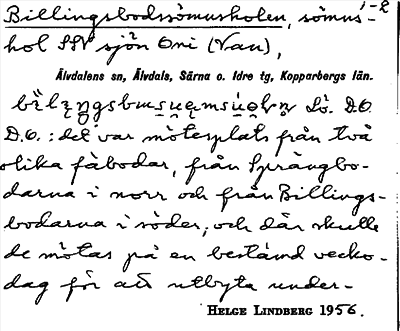 1-2
Billingsbodssömusholen, sömus-
hol SSV sjön Oni (Van),
Älvdalens sn, Älvdals, Särna o. Idre tg, Kopparbergs län.
Lö. D.O.
D.O.: det var mötesplats från två
olika fäbodar, från Sprängbo-
darna i norr och från Billings-
bodarna i söder, och där skulle
de mötas på en bestämd vecko-
dag för att utbyta under-
HELGE LINDBERG 1956.